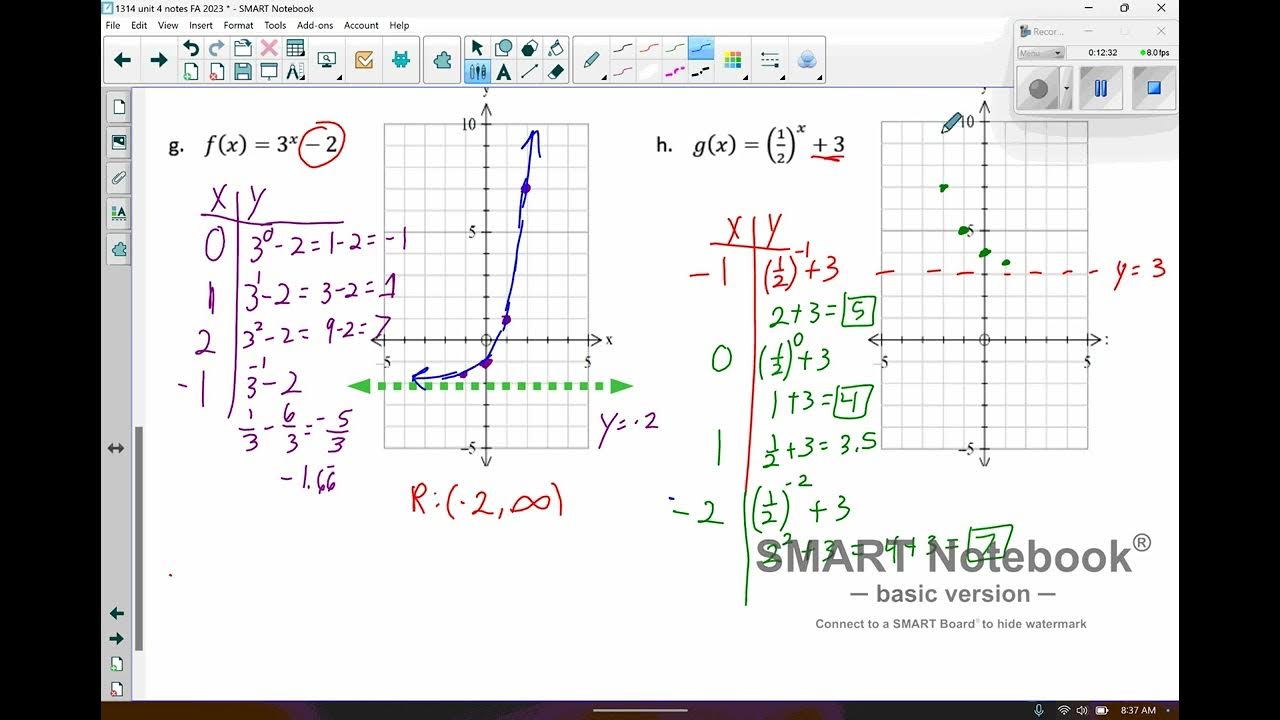 1314 unit 4 notes FA 2023 * - SMART Notebook
File Edit View Insert Format Tools Add-ons Account Help
Recor...
Menu
0:12:32
8.0fps
g. f(x) = 3^x − 2
x y
0 3^0 - 2 = 1 - 2 = -1
1 3^1 - 2 = 3 - 2 = 1
2 3^2 - 2 = 9 - 2 = 7
-1 3^-1 - 2
1/3 - 6/3 = -5/3
-1.66
10
5
-5
5
x
y
-5
y = -2
R: (-2, ∞)
h. g(x) = (1/2)^x + 3
x y
-1 (1/2)^-1 + 3
2 + 3 = 5
0 (1/2)^0 + 3
1 + 3 = 4
1 1/2 + 3 = 3.5
-2 (1/2)^-2 + 3
2^2 + 3 = 4 + 3 = 7
10
5
y = 3
-5
5
-5
SMART Notebook®
— basic version —
Connect to a SMART Board® to hide watermark
8:37 AM